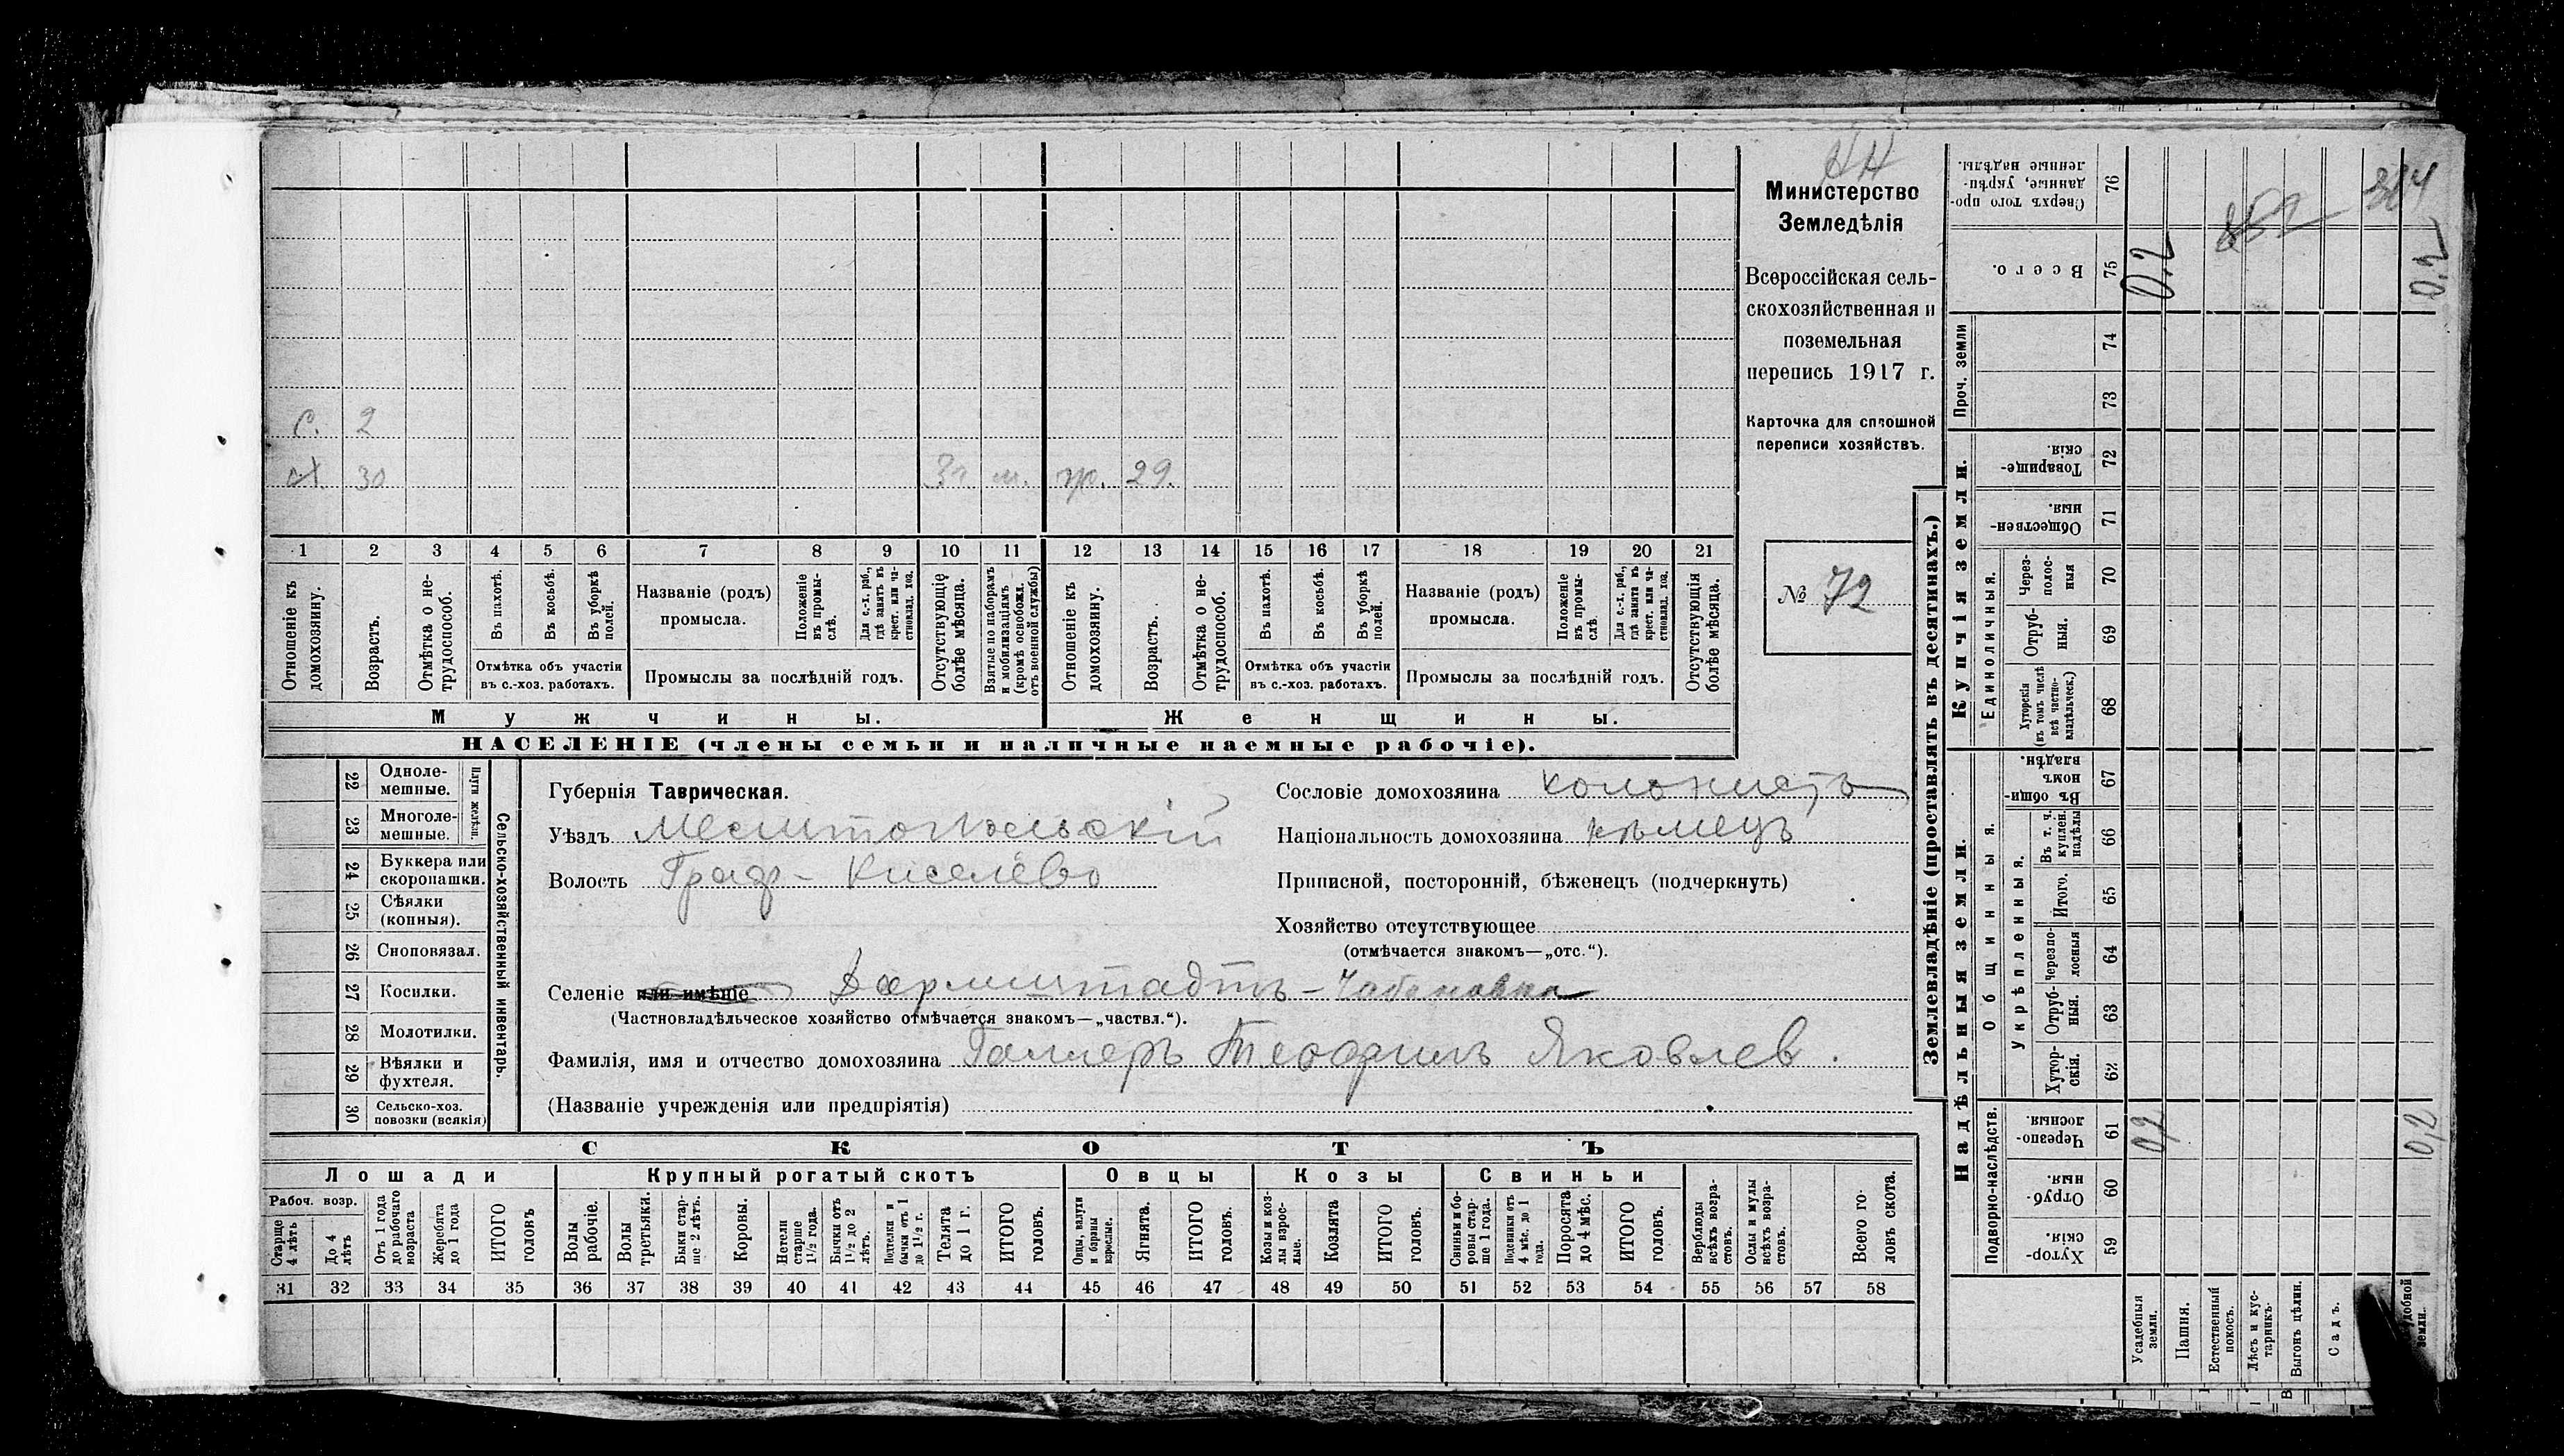 НН
Министерство
Земледѣлія
Всероссійская сель-
скохозяйственная и
поземельная
перепись 1917 г.
Карточка для сплошной
переписи хозяйствъ.
№ 72
с. 2
30 м. ж. 29.
1 2 3 4 5 6 7 8 9 10 11 12 13 14 15 16 17 18 19 20 21
Отношеніе къ домохозяину.
Возрастъ.
Отмѣтка о не-трудоспособ.
Въ пахотѣ.
Въ косьбѣ.
Въ уборкѣ полей.
Отмѣтка объ участіи
въ с.-хоз. работахъ.
Названіе (родъ)
промысла.
Положеніе въ промы-слѣ.
Для с.-х. раб., гдѣ занятъ въ крест. или ча-стновлад. хоз.
Промыслы за послѣдній годъ.
Отсутствующіе болѣе мѣсяца.
Взятые по наборамъ и мобилизаціямъ (кромѣ освобожд. отъ военной службы)
Отношеніе къ домохозяину.
Возрастъ.
Отмѣтка о не-трудоспособ.
Въ пахотѣ.
Въ косьбѣ.
Въ уборкѣ полей.
Отмѣтка объ участіи
въ с.-хоз. работахъ.
Названіе (родъ)
промысла.
Положеніе въ промы-слѣ.
Для с.-х. раб., гдѣ занята въ крест. или ча-стновлад. хоз.
Промыслы за послѣдній годъ.
Отсутствующія болѣе мѣсяца.
Мужчины. Женщины.
НАСЕЛЕНІЕ (члены семьи и наличные наемные рабочіе).
22 Одноле-мешные.
23 Многоле-мешные.
Плуги желѣзн.
24 Буккера или скоропашки.
25 Сѣялки (конныя).
26 Сноповязал.
27 Косилки.
28 Молотилки.
29 Вѣялки и фухтеля.
30 Сельско-хоз. повозки (всякія)
Сельско-хозяйственный инвентарь.
Губернія Таврическая.
Уѣздъ Мелитопольскій
Волость Граф-Киселёво
Сословіе домохозяина колонистъ
Національность домохозяина нѣмецъ
Приписной, посторонній, бѣженецъ (подчеркнуть)
Хозяйство отсутствующее
(отмѣчается знакомъ—„отс.“).
Селеніе или имѣніе Дармштадтъ-Чабановка
(Частновладѣльческое хозяйство отмѣчается знакомъ—„частвл.“).
Фамилія, имя и отчество домохозяина Галлеръ Теофилъ Яковлев.
(Названіе учрежденія или предпріятія)
СКОТЪ
Лошади Крупный рогатый скотъ Овцы Козы Свиньи
Рабоч. возр.
Старше 4 лѣтъ
До 4 лѣтъ
Отъ 1 года до рабочаго возраста
Жеребята до 1 года
ИТОГО головъ
Волы рабочіе.
Волы третьяки.
Быки стар-ше 2 лѣтъ.
Коровы.
Нетели старше 1½ года.
Бычки отъ 1½ до 2 лѣтъ.
Подтелки и бычки отъ 1 до 1½ г.
Телята до 1 г.
ИТОГО головъ.
Овцы, валухи и бараны взрослые.
Ягнята.
ИТОГО головъ.
Козы и коз-лы взрос-лые.
Козлята
ИТОГО головъ.
Свиньи и бо-ровы стар-ше 1 года.
Подсвинки отъ 4 мѣс. до 1 года.
Поросята до 4 мѣс.
ИТОГО головъ.
Верблюды всѣхъ возра-стовъ.
Ослы и мулы всѣхъ возра-стовъ.
Всего го-ловъ скота.
31 32 33 34 35 36 37 38 39 40 41 42 43 44 45 46 47 48 49 50 51 52 53 54 55 56 57 58
Землевладѣніе (проставлять въ десятинахъ.)
Надѣльныя земли. Купчія земли. Проч. земли
Подворно-наслѣдств.
Общинныя.
Укрѣпленныя.
Единоличныя.
Хутор-скія. 59
Отруб-ныя. 60
Черезпо-лосныя. 61
Хутор-скія. 62
Отруб-ныя. 63
Черезпо-лосныя 64
Итого. 65
Въ т. ч. куплен. надѣлы 66
Въ общи-номъ владѣн. 67
Хуторскія (въ томъ числѣ всѣ частно-владѣльческ.) 68
Отруб-ныя. 69
Через-полос-ныя 70
Обществен-ныя. 71
Товарище-скія. 72
73
74
Всего. 75
Сверхъ того про-данные, укрѣп-ленные надѣлы. 76
Усадебныя земли. 0,2 0.2
Пашня.
Естественный покосъ.
Лѣсъ и кус-тарникъ.
Выгонъ цѣлин.
Садъ.
удобной земли. 0,2 0.2
852